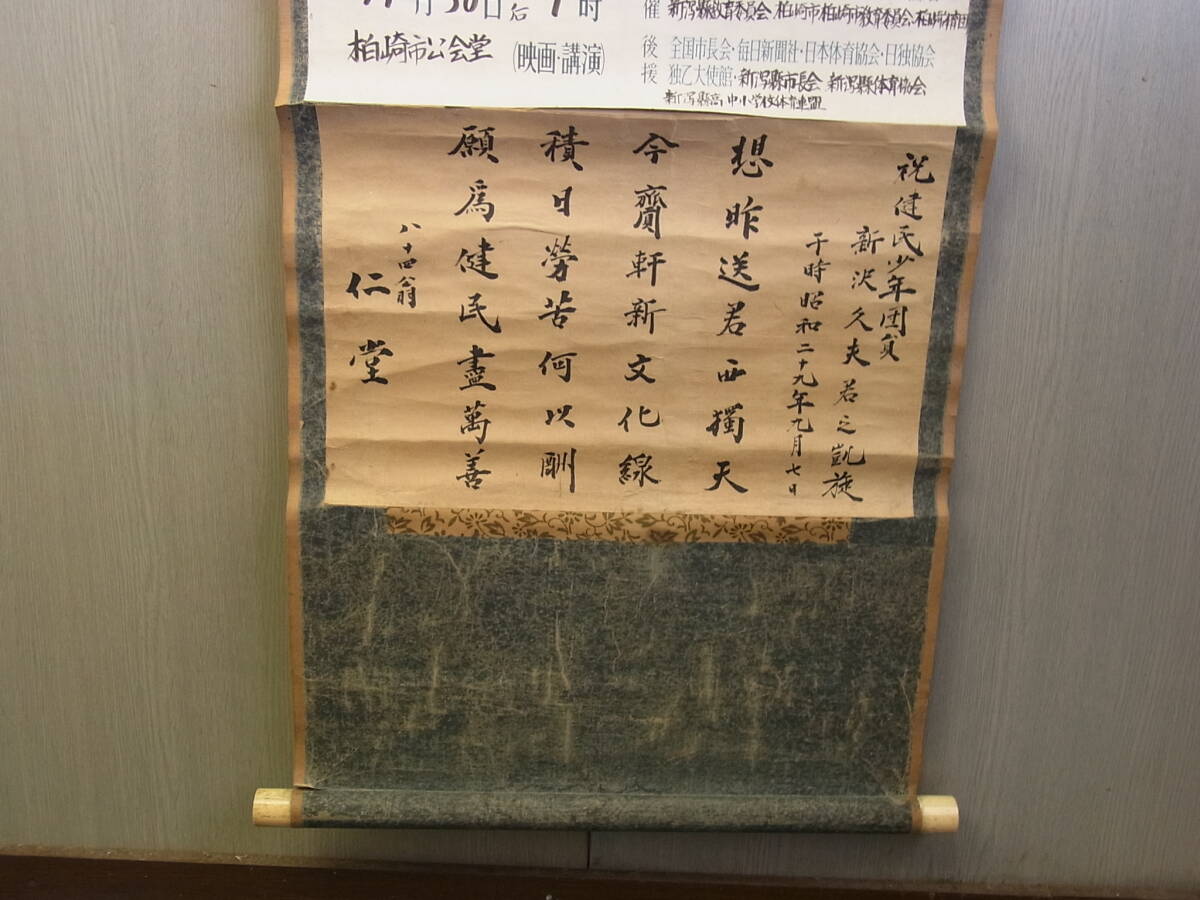 月30日后1時
柏崎市公会堂
(映画・講演)
催 新潟縣教育委員会・柏崎市・柏崎市教育委員会・柏崎体育団
後援 全国市長会・毎日新聞社・日本体育協会・日独協会
独乙大使館・新潟縣市長会 新潟縣体育協会
新潟縣高、中小学校体育連盟
祝健民少年団員
新沢久夫君之凱旋
于時昭和二十九年九月七日
想昨送君西獨天
今齎軒新文化線
積日勞苦何以酬
願爲健民盡萬善
八十四翁
仁堂